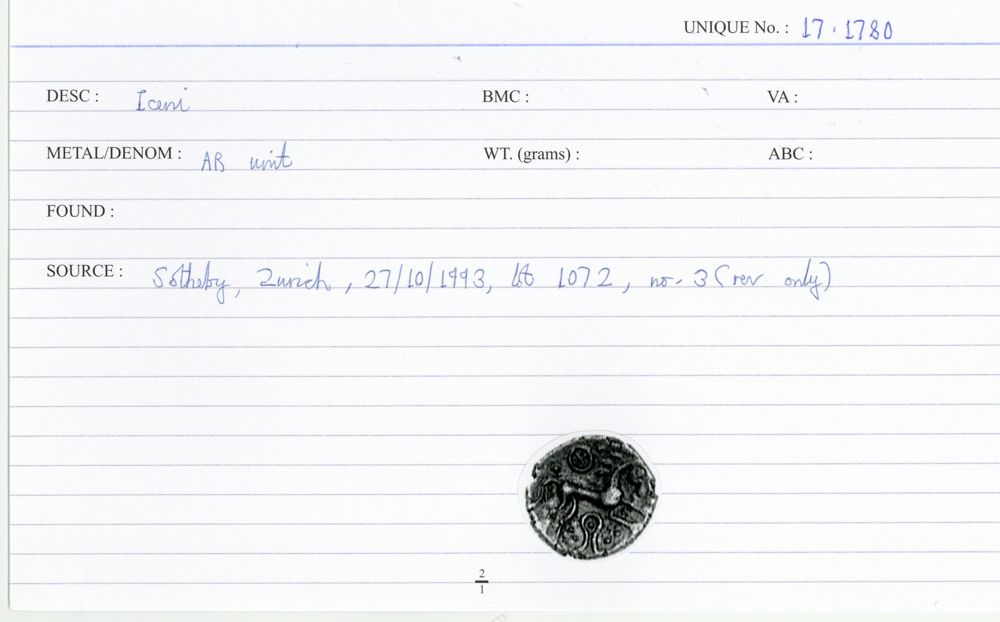 UNIQUE No. : 17.1780
DESC : Iceni BMC : VA :
METAL/DENOM : AR unit WT. (grams) : ABC :
FOUND :
SOURCE : Sotheby, Zurich, 27/10/1993, lot 1072, no. 3 (rev only)
2
1